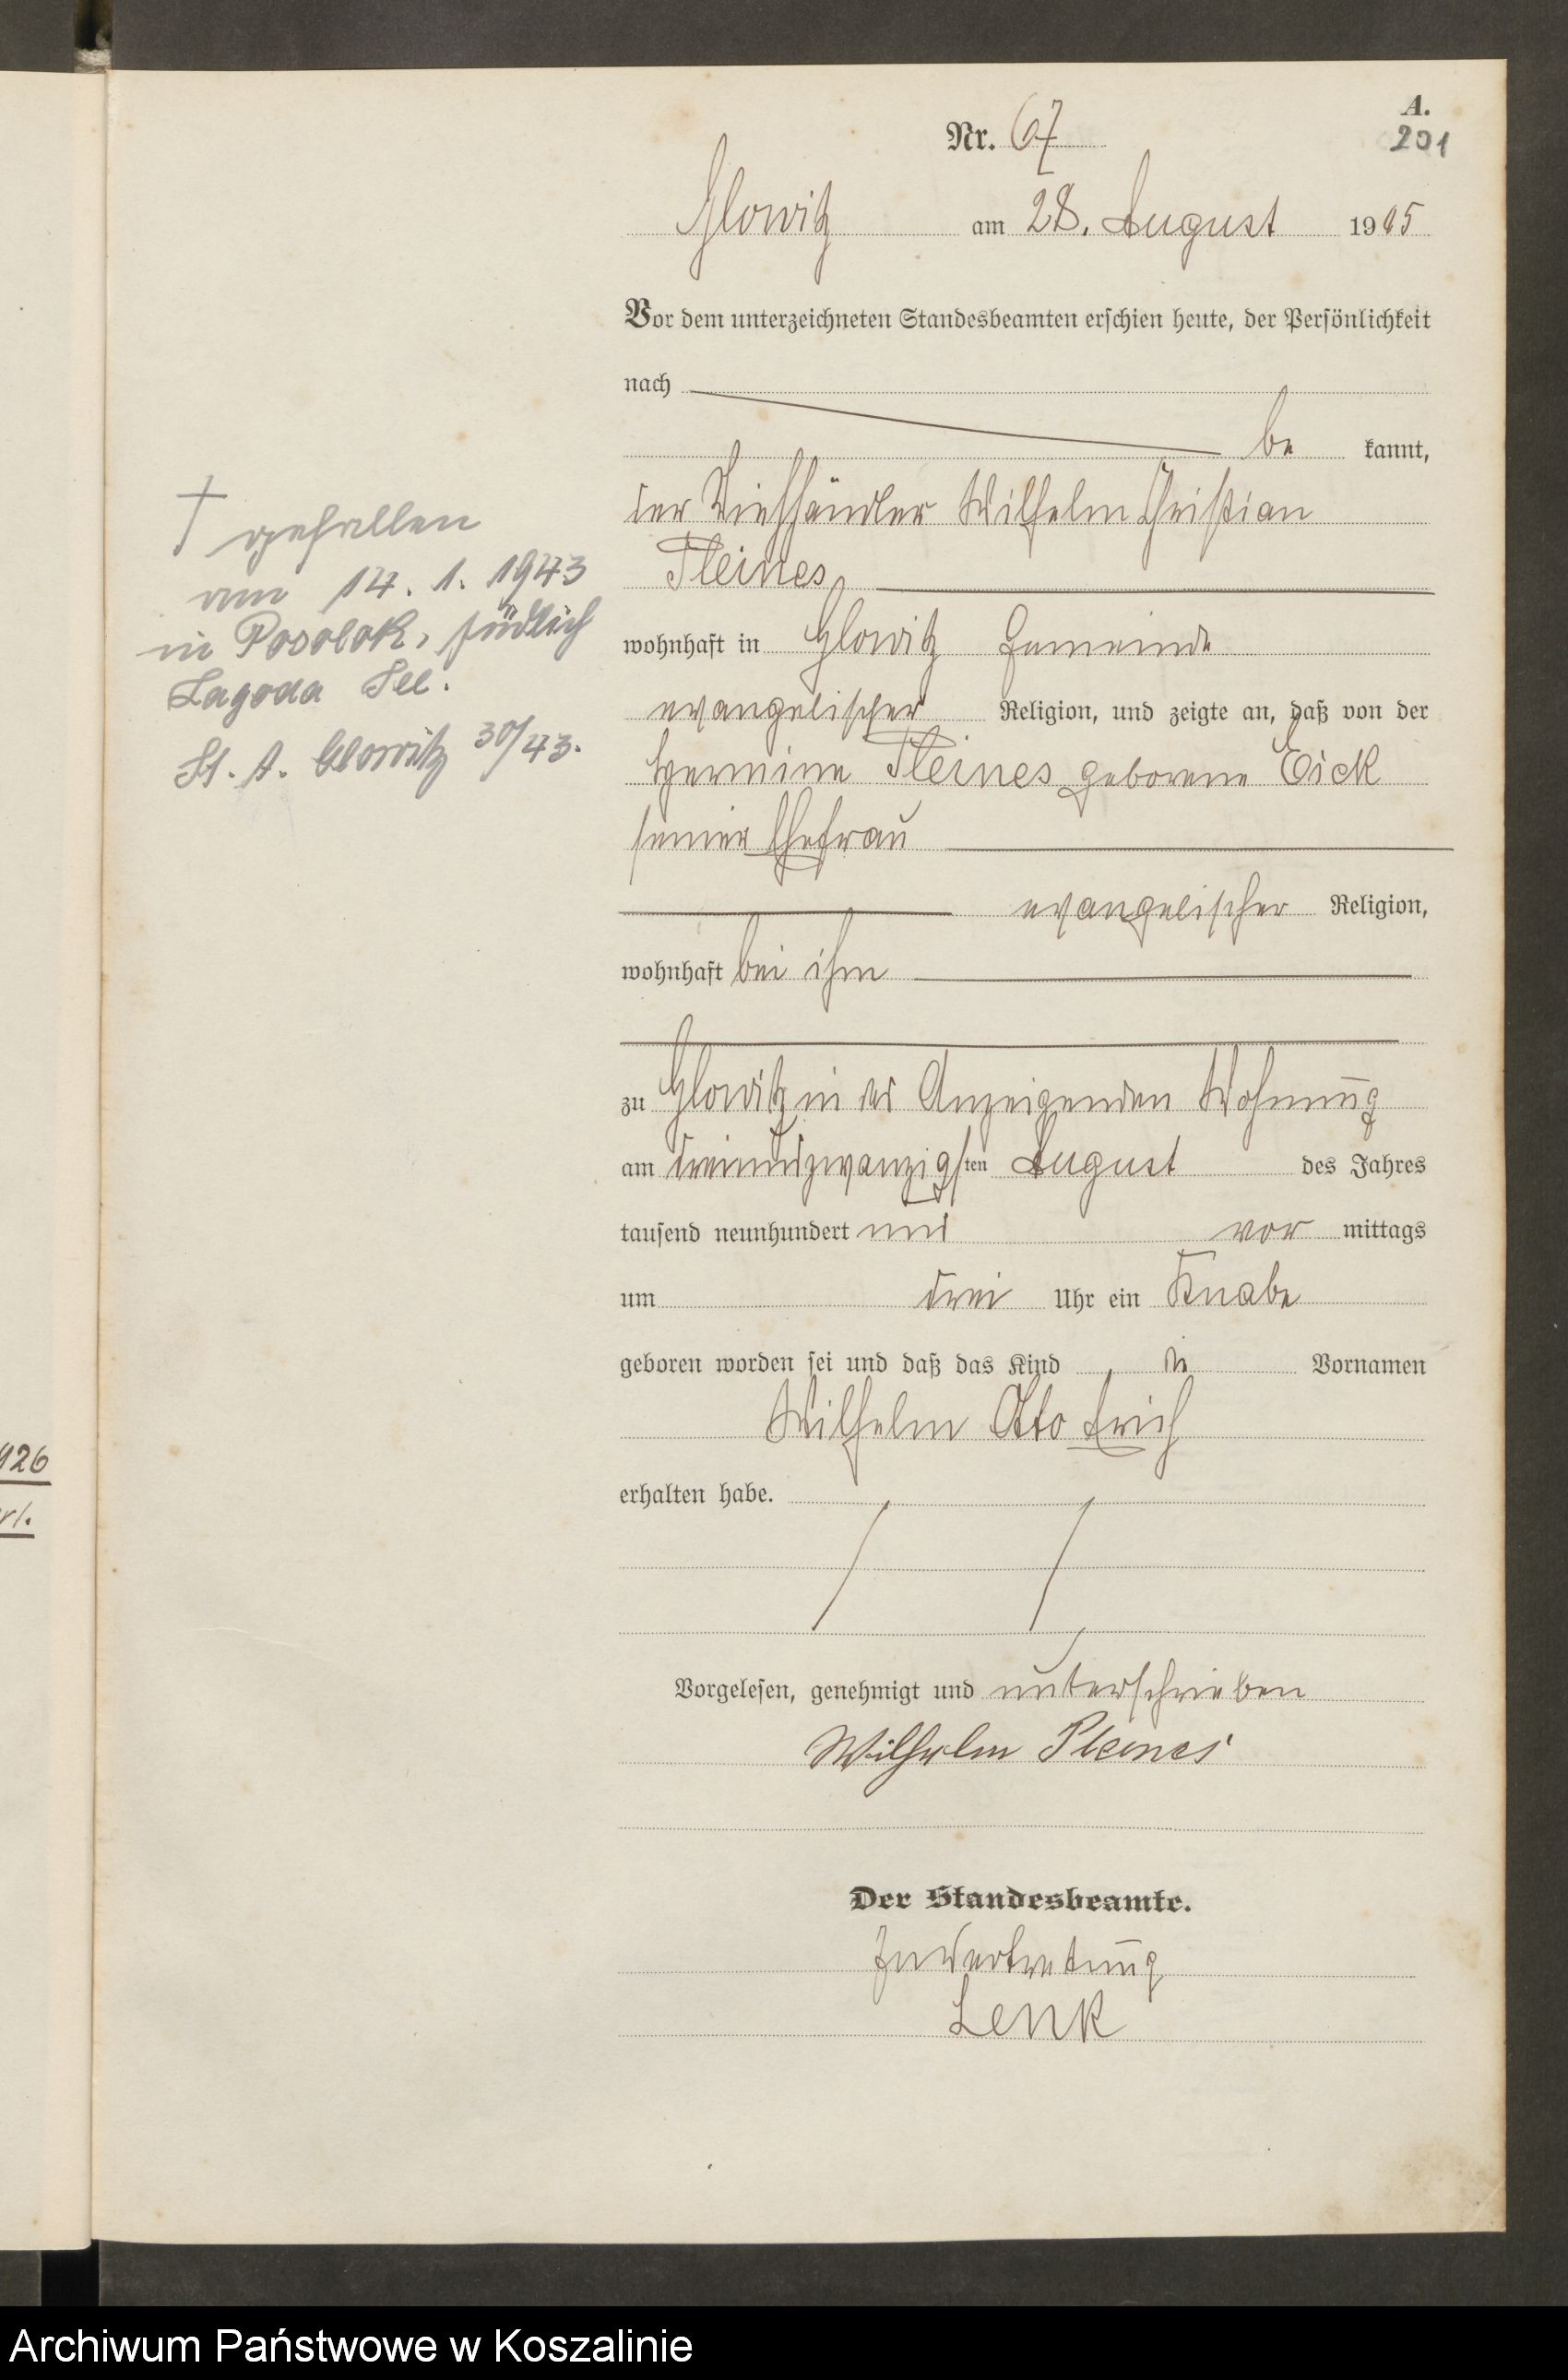 A.
201
Nr. 67
Glowitz am 28. August 1905
Vor dem unterzeichneten Standesbeamten erschien heute, der Persönlichkeit
nach
be kannt,
der Viehhändler Wilhelm Christian
Pleines
wohnhaft in Glowitz Gemeinde
evangelischer Religion, und zeigte an, daß von der
Hermine Pleines geborene Eick
seiner Ehefrau
evangelischer Religion,
wohnhaft bei ihm
zu Glowitz in des Anzeigenden Wohnung
am dreiundzwanzigsten August des Jahres
tausend neunhundert und vor mittags
um drei Uhr ein Knabe
geboren worden sei und daß das Kind die Vornamen
Wilhelm Otto Erich
erhalten habe.
Vorgelesen, genehmigt und unterschrieben
Wilhelm Pleines
Der Standesbeamte.
In Vertretung
Lenk
† gefallen
am 14. 1. 1943
in Posolok, südlich
Lagoda See.
St. A. Glowitz 30/43.
926
rl.
Archiwum Państwowe w Koszalinie